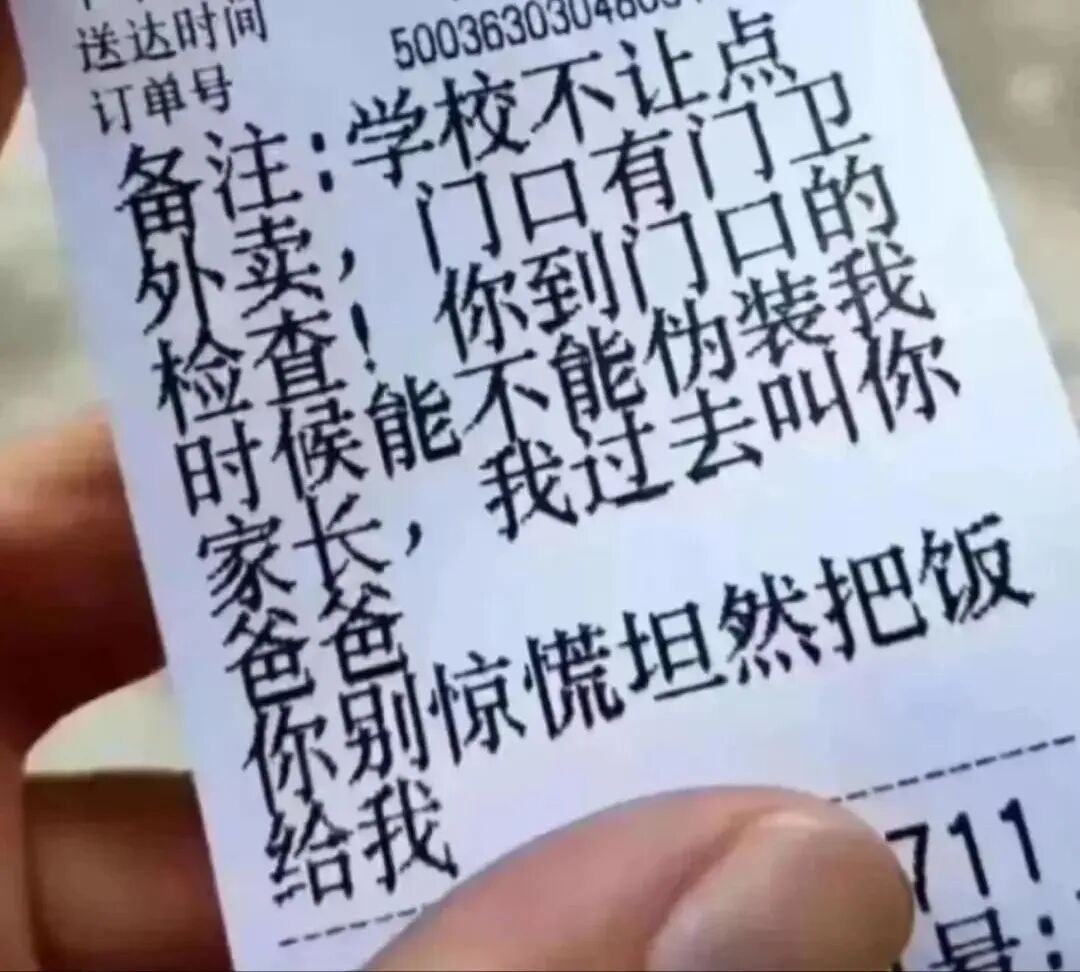 送达时间
订单号
备注:学校不让点
外卖,门口有门卫
检查!你到门口的
时候能不能伪装我
家长,我过去叫你
爸爸
你别惊慌坦然把饭
给我
711
号: